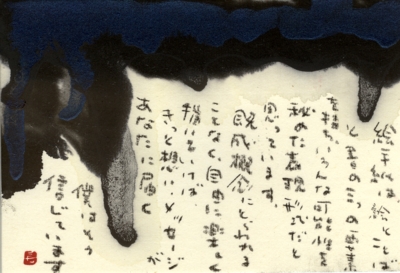 絵手紙は絵とことば
と書の三つの要素
を持ち、いろんな可能性を
秘めた表現形式だと
思っています
既成概念にとらわれる
ことなく自由に楽しく
描いてければ
きっと想いメッセージが
あなたに届く
僕はそう
信じています